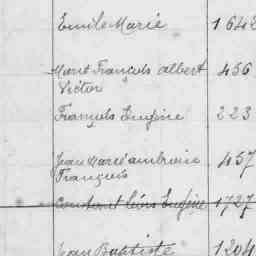 Emile Marie 1642
Marie François Albert 456
Victor
François Eugène 223
Jean Marie Ambroise 457
François
Constant Léon Eugène 1727
Jean Baptiste 1204